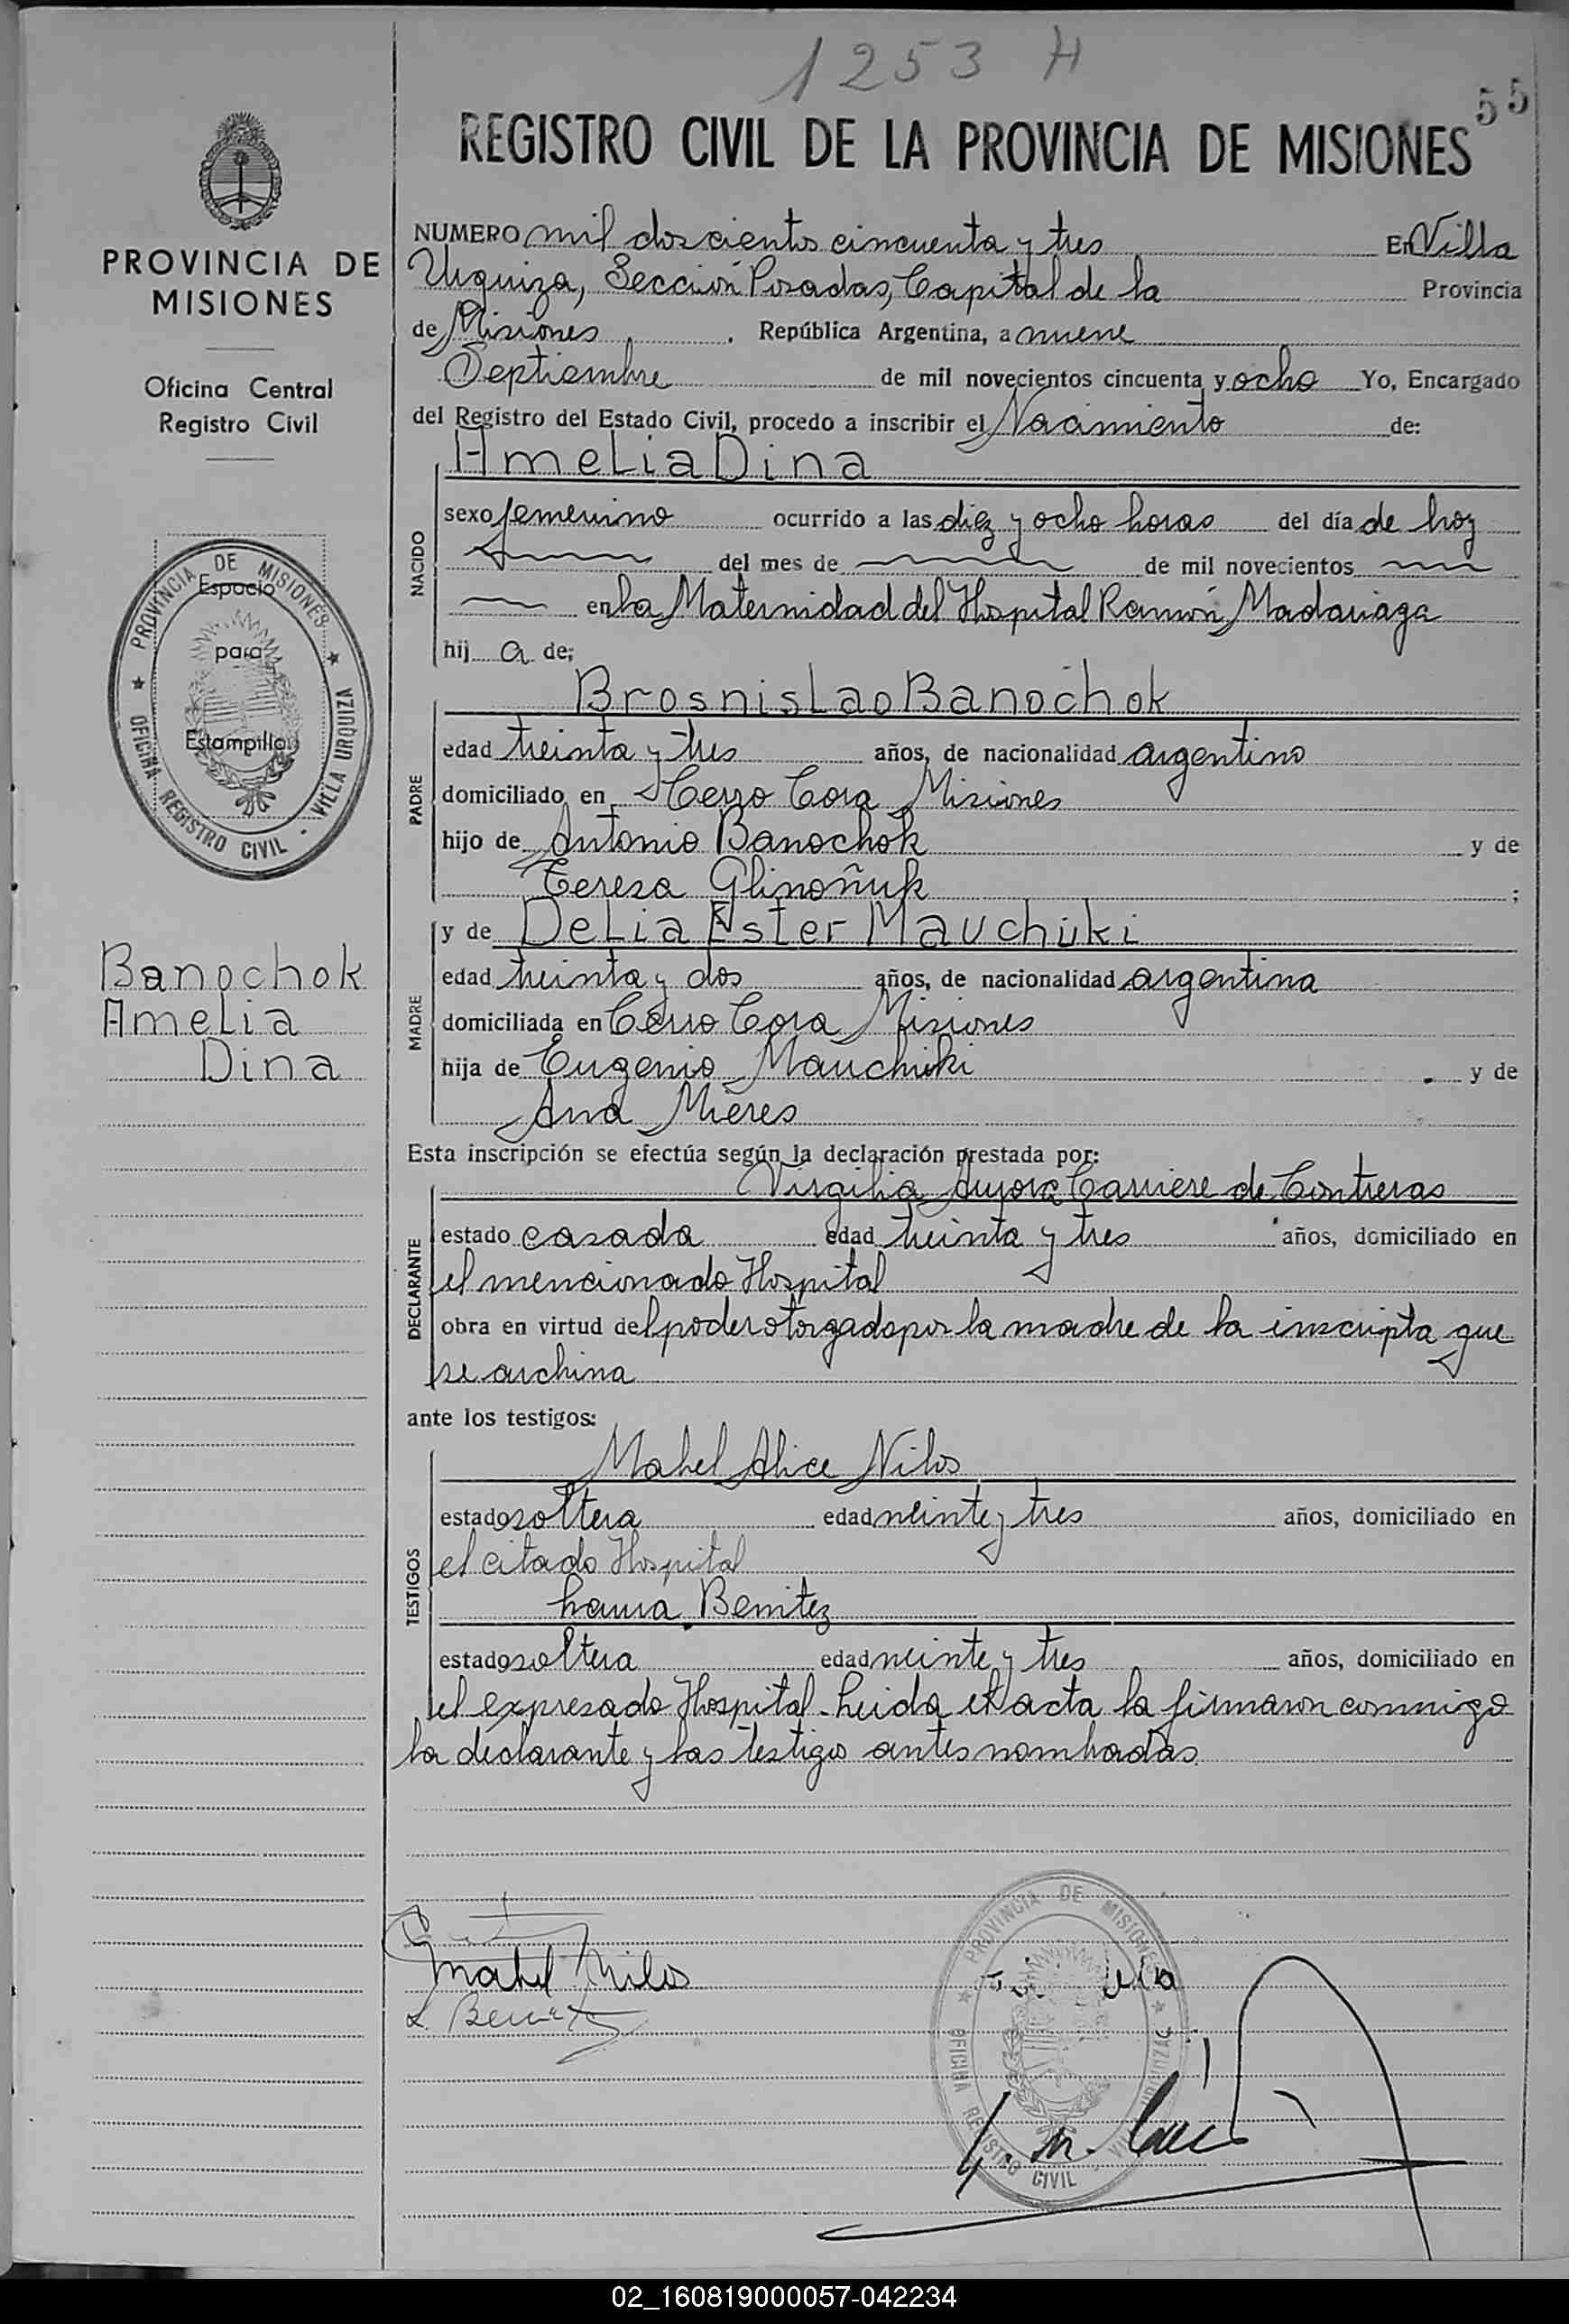 1253 H
55
REGISTRO CIVIL DE LA PROVINCIA DE MISIONES
PROVINCIA DE
MISIONES
Oficina Central
Registro Civil
PROVINCIA DE MISIONES
OFICINA REGISTRO CIVIL - VILLA URQUIZA
Espacio
para
Estampilla
Banochok
Amelia
Dina
NUMERO mil doscientos cincuenta y tres En Villa
Urquiza, Sección Posadas, Capital de la Provincia
de Misiones . República Argentina, a nueve
Septiembre de mil novecientos cincuenta y ocho Yo, Encargado
del Registro del Estado Civil, procedo a inscribir el Nacimiento de:
NACIDO
Amelia Dina
sexo femenino ocurrido a las diez y ocho horas del día de hoy
del mes de de mil novecientos
en la Maternidad del Hospital Ramón Madariaga
hij a de;
PADRE
Brosnislao Banochok
edad treinta y tres años, de nacionalidad argentino
domiciliado en Cerro Cora Misiones
hijo de Antonio Banochok y de
Teresa Glinoñuk ;
MADRE
y de Delia Ester Mauchuki
edad treinta y dos años, de nacionalidad argentina
domiciliada en Cerro Cora Misiones
hija de Eugenio Mauchuki y de
Ana Mieres
Esta inscripción se efectúa según la declaración prestada por:
DECLARANTE
Virgilia Aurora Carriere de Contreras
estado casada edad treinta y tres años, domiciliado en
el mencionado Hospital
obra en virtud del poder otorgado por la madre de la inscripta que
se archiva
ante los testigos:
TESTIGOS
Mabel Alice Nilos
estado soltera edad veinte y tres años, domiciliado en
el citado Hospital
Laura Benitez
estado soltera edad veinte y tres años, domiciliado en
el expresado Hospital - Leida el acta la firmaron conmigo
la declarante y las testigos antes nombradas
Mabel Nilos
L. Benitez
PROVINCIA DE MISIONES
OFICINA REGISTRO CIVIL - VILLA URQUIZA
02_160819000057-042234